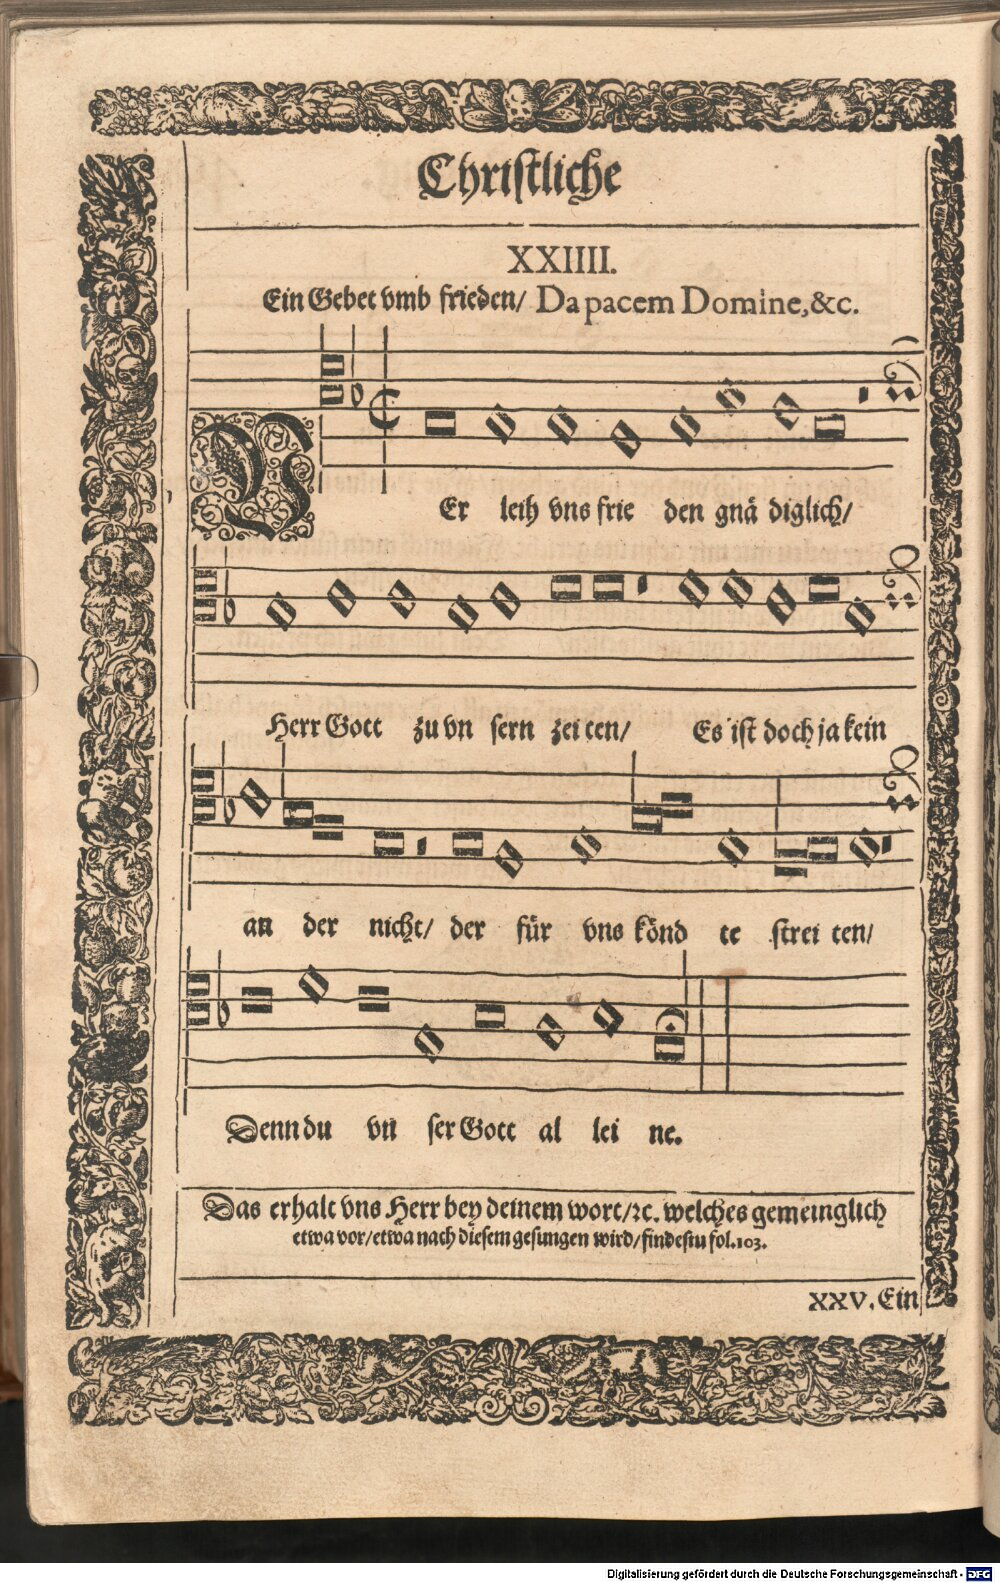 Christliche
XXIIII.
Ein Gebet vmb frieden/ Da pacem Domine, &c.
VEr leih vns frie den gnä diglich/
Herr Gott zu vn sern zei ten/ Es ist doch ja kein
an der nicht/ der für vns könd te strei ten/
Denn du vn ser Gott al lei ne.
Das erhalt vns Herr bey deinem wort/ ꝛc. welches gemeinglich
etwa vor/ etwa nach diesem gesungen wird/ findestu fol. 103.
XXV. Ein
Digitalisierung gefördert durch die Deutsche Forschungsgemeinschaft - DFG